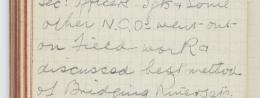 Sec: Officer Sgts & some
other N.C.Os went out
on Field work &
discussed best method
of Bridging Rivers etc.